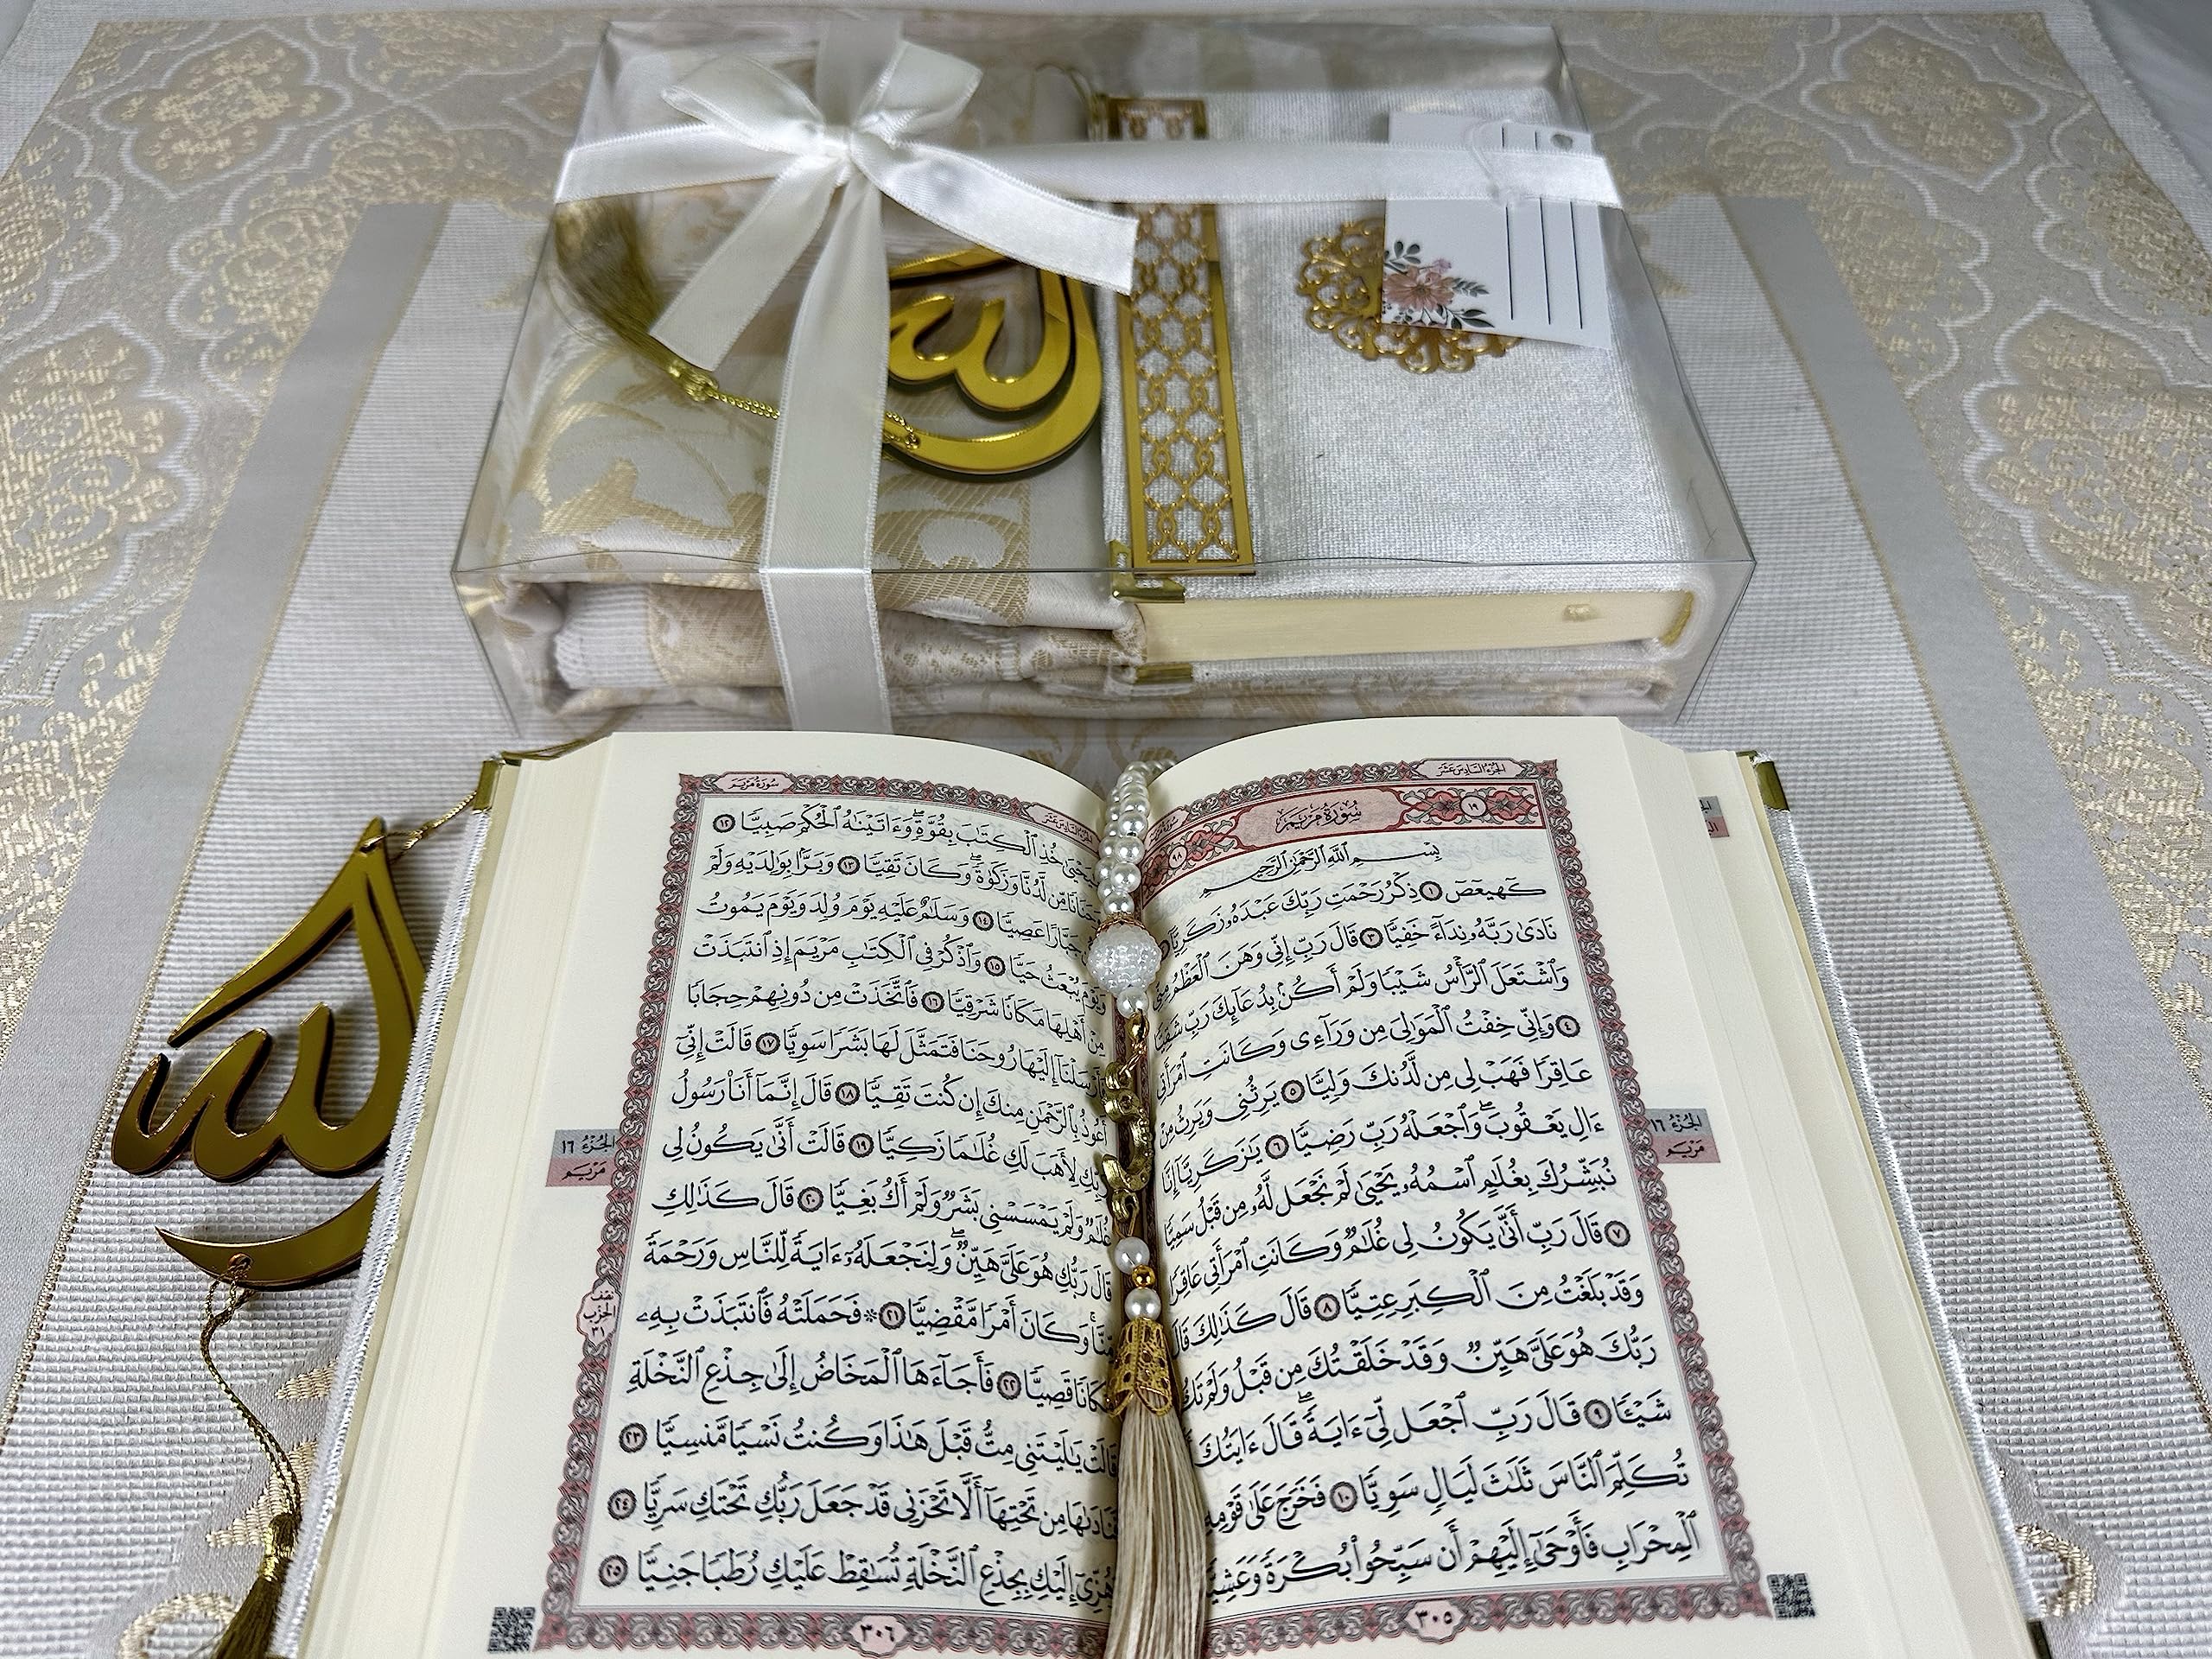 الله
الجزء السادس عشر
١٩ سُورَةُ مَرْيَمَ ٩٨
بِسْمِ ٱللَّهِ ٱلرَّحْمَٰنِ ٱلرَّحِيمِ
كٓهيعٓصٓ ١ ذِكْرُ رَحْمَتِ رَبِّكَ عَبْدَهُۥ زَكَرِيَّآ
نَادَىٰ رَبَّهُۥ نِدَآءً خَفِيًّا ٣ قَالَ رَبِّ إِنِّي وَهَنَ ٱلْعَظْمُ مِنِّي
وَٱشْتَعَلَ ٱلرَّأْسُ شَيْبًا وَلَمْ أَكُنۢ بِدُعَآئِكَ رَبِّ شَقِيًّا
٤ وَإِنِّي خِفْتُ ٱلْمَوَٰلِيَ مِن وَرَآءِي وَكَانَتِ ٱمْرَأَتِي
عَاقِرًا فَهَبْ لِي مِن لَّدُنكَ وَلِيًّا ٥ يَرِثُنِي وَيَرِثُ مِنْ
ءَالِ يَعْقُوبَ ۖ وَٱجْعَلْهُ رَبِّ رَضِيًّا ٦ يَٰزَكَرِيَّآ إِنَّا
نُبَشِّرُكَ بِغُلَٰمٍ ٱسْمُهُۥ يَحْيَىٰ لَمْ نَجْعَل لَّهُۥ مِن قَبْلُ سَمِيًّا
٧ قَالَ رَبِّ أَنَّىٰ يَكُونُ لِي غُلَٰمٌ وَكَانَتِ ٱمْرَأَتِي عَاقِرًا
وَقَدْ بَلَغْتُ مِنَ ٱلْكِبَرِ عِتِيًّا ٨ قَالَ كَذَٰلِكَ قَالَ
رَبُّكَ هُوَ عَلَيَّ هَيِّنٌ وَقَدْ خَلَقْتُكَ مِن قَبْلُ وَلَمْ تَكُ
شَيْـًٔا ٩ قَالَ رَبِّ ٱجْعَل لِّيٓ ءَايَةً ۚ قَالَ ءَايَتُكَ
تُكَلِّمَ ٱلنَّاسَ ثَلَٰثَ لَيَالٍ سَوِيًّا ١٠ فَخَرَجَ عَلَىٰ قَوْمِهِۦ
ٱلْمِحْرَابِ فَأَوْحَىٰٓ إِلَيْهِمْ أَن سَبِّحُوا۟ بُكْرَةً وَعَشِيًّا
٣٠٥
الجزء ١٦
مريم
الجزء السادس عشر
سورة مريم
يَٰيَحْيَىٰ خُذِ ٱلْكِتَٰبَ بِقُوَّةٍ ۖ وَءَاتَيْنَٰهُ ٱلْحُكْمَ صَبِيًّا ١٢
وَحَنَانًا مِّن لَّدُنَّا وَزَكَوٰةً ۖ وَكَانَ تَقِيًّا ١٣ وَبَرًّۢا بِوَٰلِدَيْهِ وَلَمْ
جَبَّارًا عَصِيًّا ١٤ وَسَلَٰمٌ عَلَيْهِ يَوْمَ وُلِدَ وَيَوْمَ يَمُوتُ
وَيَوْمَ يُبْعَثُ حَيًّا ١٥ وَٱذْكُرْ فِي ٱلْكِتَٰبِ مَرْيَمَ إِذِ ٱنتَبَذَتْ
مِنْ أَهْلِهَا مَكَانًا شَرْقِيًّا ١٦ فَٱتَّخَذَتْ مِن دُونِهِمْ حِجَابًا
فَأَرْسَلْنَآ إِلَيْهَا رُوحَنَا فَتَمَثَّلَ لَهَا بَشَرًا سَوِيًّا ١٧ قَالَتْ إِنِّيٓ
أَعُوذُ بِٱلرَّحْمَٰنِ مِنكَ إِن كُنتَ تَقِيًّا ١٨ قَالَ إِنَّمَآ أَنَا۠ رَسُولُ
رَبِّكِ لِأَهَبَ لَكِ غُلَٰمًا زَكِيًّا ١٩ قَالَتْ أَنَّىٰ يَكُونُ لِي
غُلَٰمٌ وَلَمْ يَمْسَسْنِي بَشَرٌ وَلَمْ أَكُ بَغِيًّا ٢٠ قَالَ كَذَٰلِكِ
قَالَ رَبُّكِ هُوَ عَلَيَّ هَيِّنٌ ۖ وَلِنَجْعَلَهُۥٓ ءَايَةً لِّلنَّاسِ وَرَحْمَةً
مِّنَّا ۚ وَكَانَ أَمْرًا مَّقْضِيًّا ٢١ ۞ فَحَمَلَتْهُ فَٱنتَبَذَتْ بِهِۦ
مَكَانًا قَصِيًّا ٢٢ فَأَجَآءَهَا ٱلْمَخَاضُ إِلَىٰ جِذْعِ ٱلنَّخْلَةِ
قَالَتْ يَٰلَيْتَنِي مِتُّ قَبْلَ هَٰذَا وَكُنتُ نَسْيًا مَّنسِيًّا ٢٣
فَنَادَىٰهَا مِن تَحْتِهَآ أَلَّا تَحْزَنِي قَدْ جَعَلَ رَبُّكِ تَحْتَكِ سَرِيًّا ٢٤
وَهُزِّيٓ إِلَيْكِ بِجِذْعِ ٱلنَّخْلَةِ تُسَٰقِطْ عَلَيْكِ رُطَبًا جَنِيًّا ٢٥
٣٠٦
الجزء ١٦
مريم
نصف
الحزب
٣١
الله